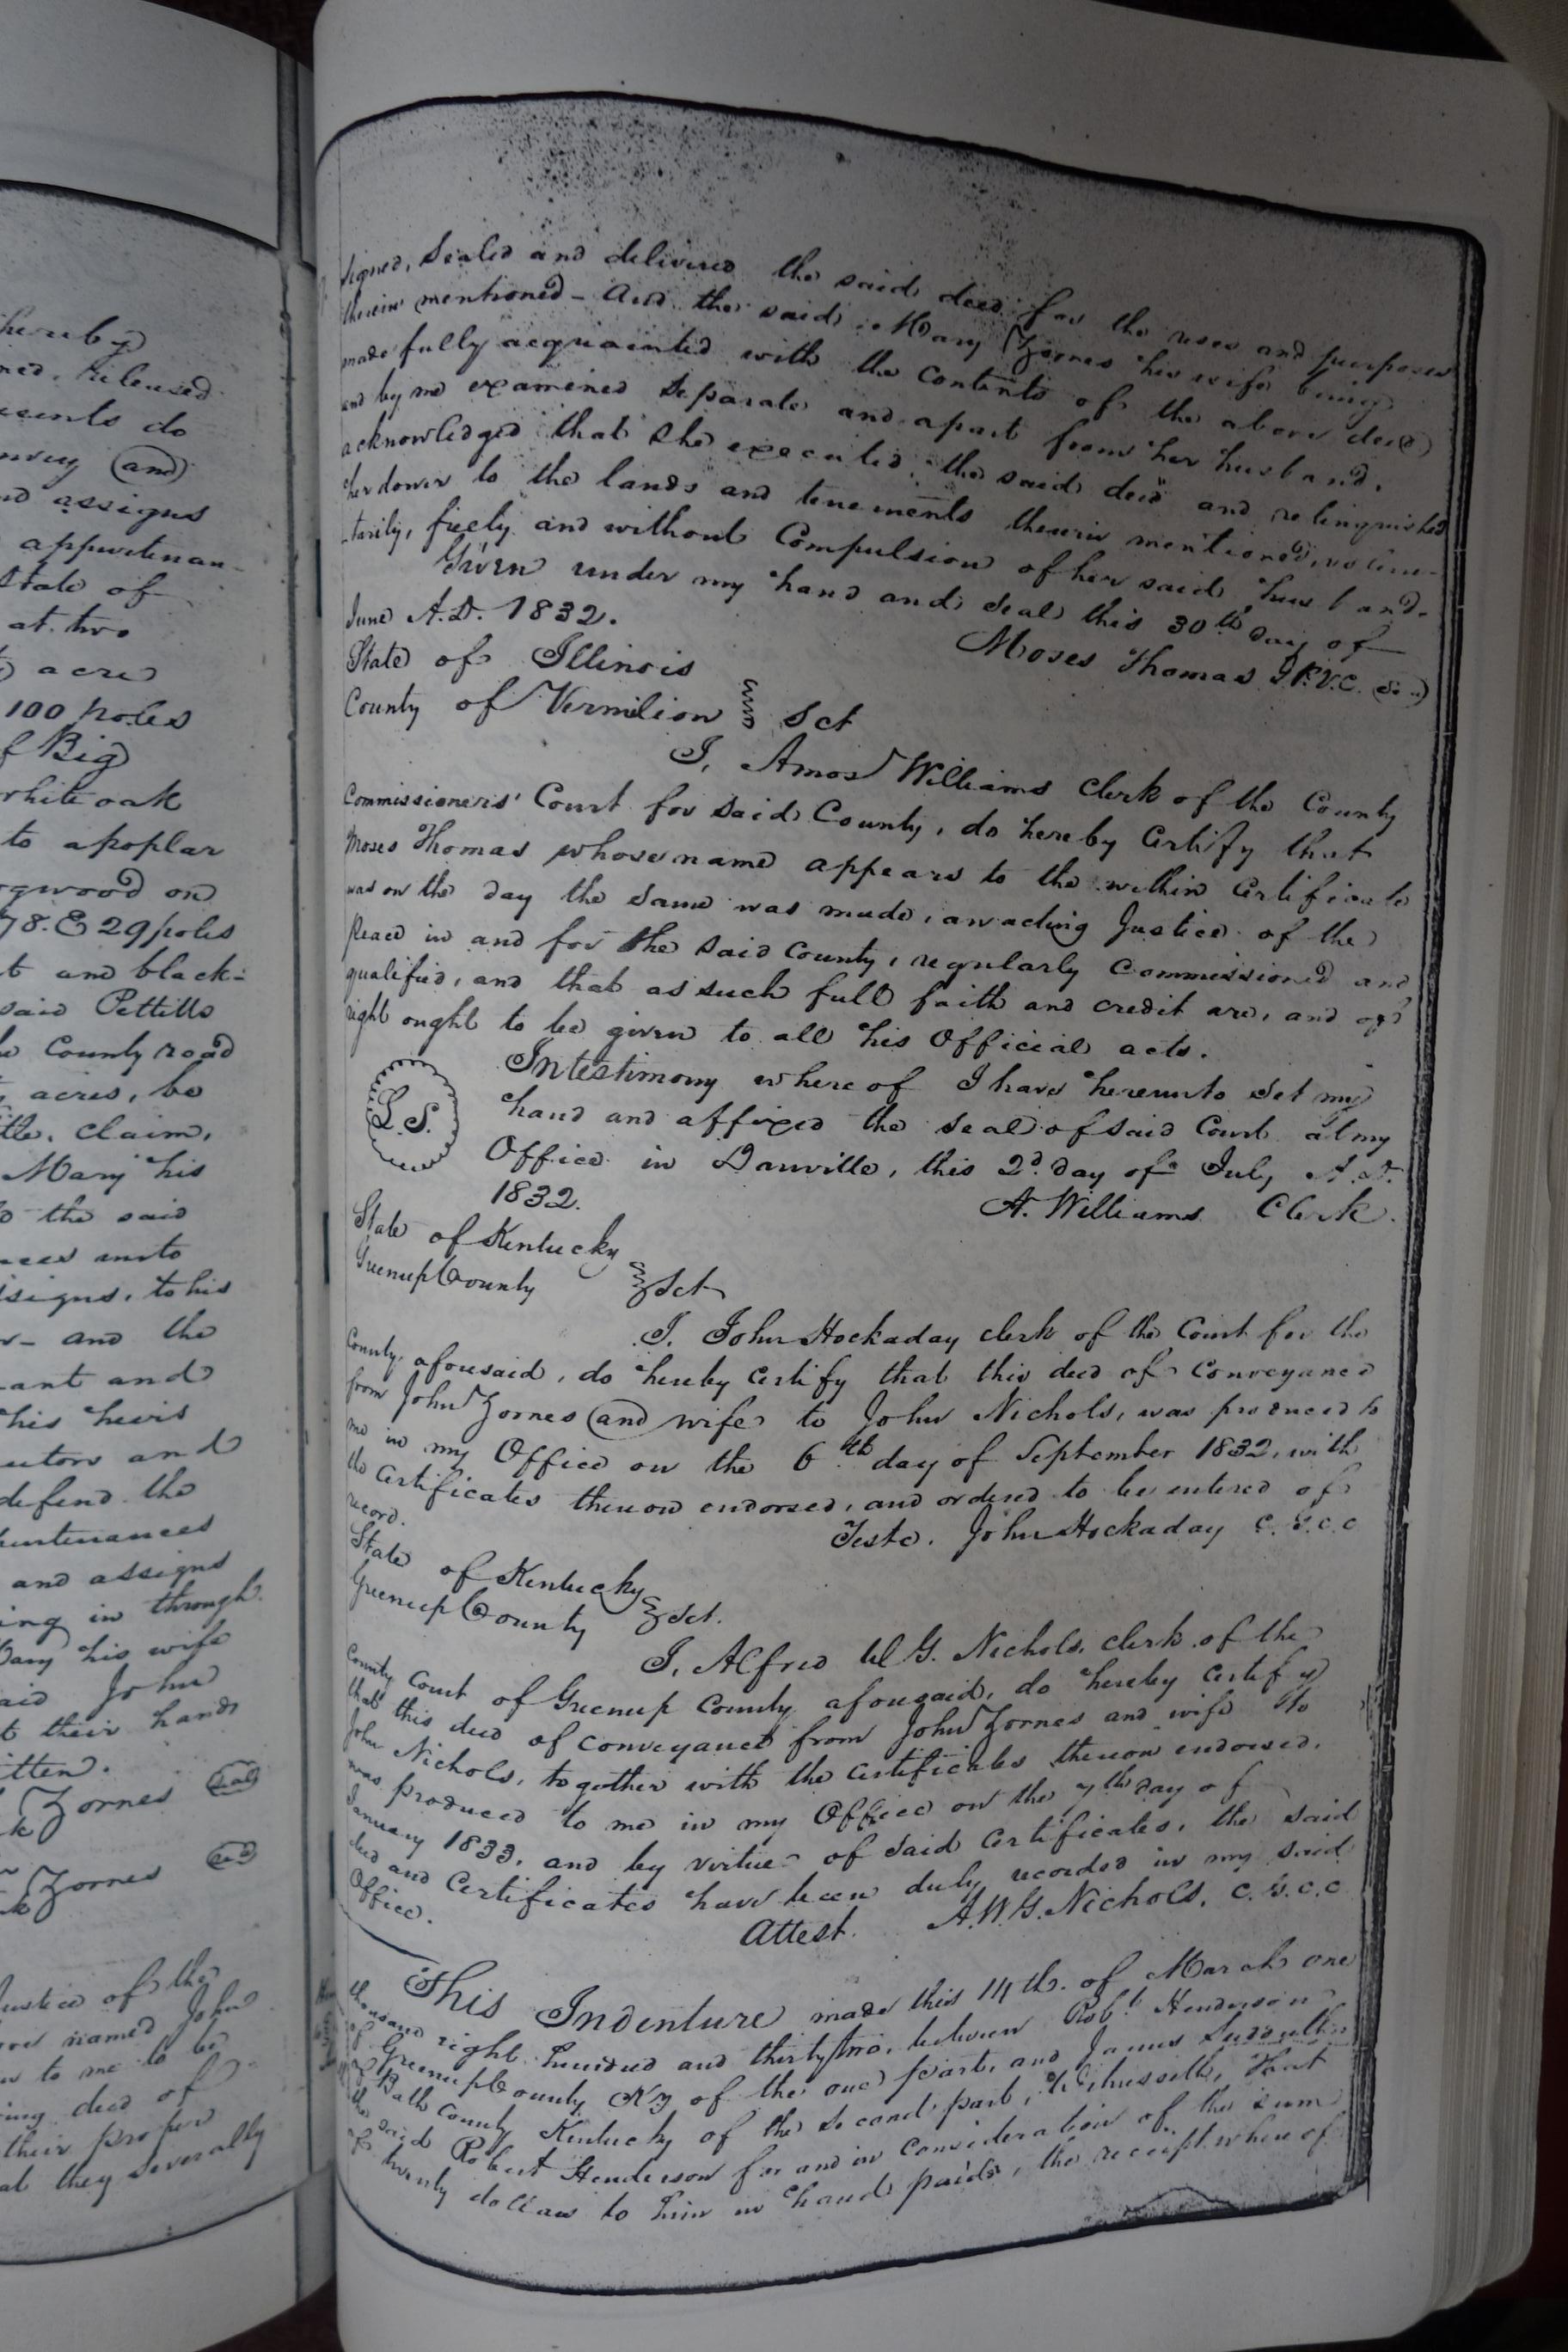 hereby
ned, released
esents do
nvey (and)
nd assigns
appurtenan-
State of
at two
acre
100 poles
f Big
white oak
to a poplar
ogwood on
78. E 29 poles
t and black-
said Pettitts
County road
acres, be
tle, claim,
Mary his
the said
unto
signs, to his
and the
ant and
his heirs
utors and
defend the
purtenances
and assigns
ing in through
Mary his wife
aid John
t their hands
itten.
Zornes (Seal)
k
Zornes (Seal)
k
Justice of the
named John
to me to be
ing deed of
their proper
at they severally
Signed, Sealed and delivered the said deed for the uses and purposes
therein mentioned - And the said Mary Zornes his wife being
made fully acquainted with the contents of the above deed
and by me examined Separate and apart from her husband,
acknowledged that she executed the said deed and relinquished
her dower to the lands and tenements therein mentioned, volun-
-tarily, freely and without Compulsion of her said husband.
Given under my hand and Seal this 30th day of
June A.D. 1832.
Moses Thomas J.P.V.C.
State of Illinois
County of Vermilion Sct
I, Amos Williams Clerk of the County
Commissioners' Court for said County, do hereby Certify that
Moses Thomas whose name appears to the within Certificate
was on the day the same was made, an acting Justice of the
Peace in and for the said County, regularly Commissioned and
qualified, and that as such full faith and credit are, and of
right ought to be given to all his Official acts.
In testimony whereof I have hereunto Set my
hand and affixed the seal of said Court at my
L.S.
Office in Danville, this 2d. day of July A.D.
1832.
A. Williams Clerk.
State of Kentucky
Greenup County Sct
I, John Hockaday clerk of the Court for the
County aforesaid, do hereby Certify that this deed of Conveyance
from John Zornes (and) wife to John Nichols, was produced to
me in my Office on the 6th day of September 1832, with
the Certificates thereon endorsed, and ordered to be entered of
record.
Teste. John Hockaday C.G.C.C
State of Kentucky
Greenup County Sct.
I, Alfred W. G. Nichols, clerk of the
County Court of Greenup County aforesaid, do hereby Certify
that this deed of conveyance from John Zornes and wife to
John Nichols, together with the Certificates thereon endorsed,
was produced to me in my Office on the 7th day of
January 1833, and by virtue of said Certificates, the said
deed and Certificates have been duly recorded in my said
Office.
Attest. A.W.G. Nichols, C.G.C.C
This Indenture made this 14th. of March one
thousand eight hundred and thirty two, between Robt. Henderson
of Greenup County Ky of the one part, and James
of Bath County Kentucky of the Second part, Witnesseth, That
the said Robert Henderson for and in consideration of the sum
of twenty dollars to him in hand paid, the receipt whereof